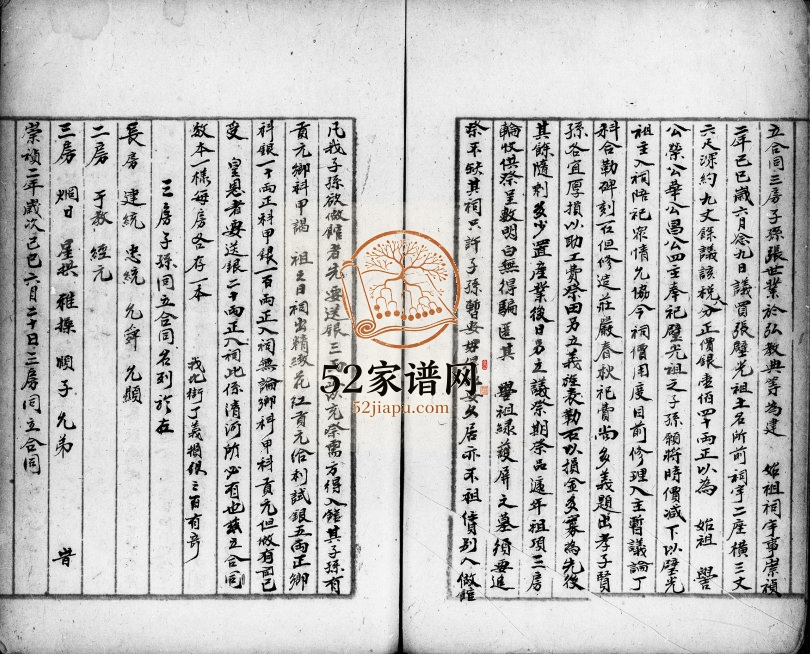 立合同三房子孫張世業於弘教典等為建 始祖祠宇事崇禎
二年己巳歲六月念九日議買張璧光祖土名所前祠宇二座橫三丈
六尺深約九丈餘議該税 分正價銀壹佰四十両正以為 始祖 譽
公榮公華公昌公四主奉祀璧光祖之子孫願將時價减下以璧光
祖主入祠陪祀衆情允協今祠價用度目前修理入主暫議論丁
科合勒碑刻石但修造莊嚴春秋祀費尚多義題出孝子賢
孫各宜厚損以助工費祭田另立義 表勒石以損金多寡為先後
其餘隨剩多少置産業後日另立議祭期祭品遞年祖項三房
輪收供祭呈數明白無得騙匿其 譽祖緑 屏之墓須要進
祭不缺其祠只許子孫暫 居亦不祖債别人做館
凡我子孫欲做館者先要送銀三 充祭需方得入館其子孫有
貢元鄉科甲謁 祖之日祠出精緻花红貢元佮刺試銀五両正鄉
科銀一十両正科甲銀一百両正入祠無論鄉科甲科貢元但做有司已
受 皇恩者要送銀二十両正入祠此係清河所必有也兹立合同
数本一樣每房各存一本
我北街丁義損銀三百有奇
三房子孫同立合同名列於在
長房 建統 忠統 允舜 允顯
二房 于教 經元
三房 烱日 星拱 雅操 順子 兄弟 昔
崇禎二年歲次己巳六月二十日三房同立合同
52家谱网
52jiapu.com